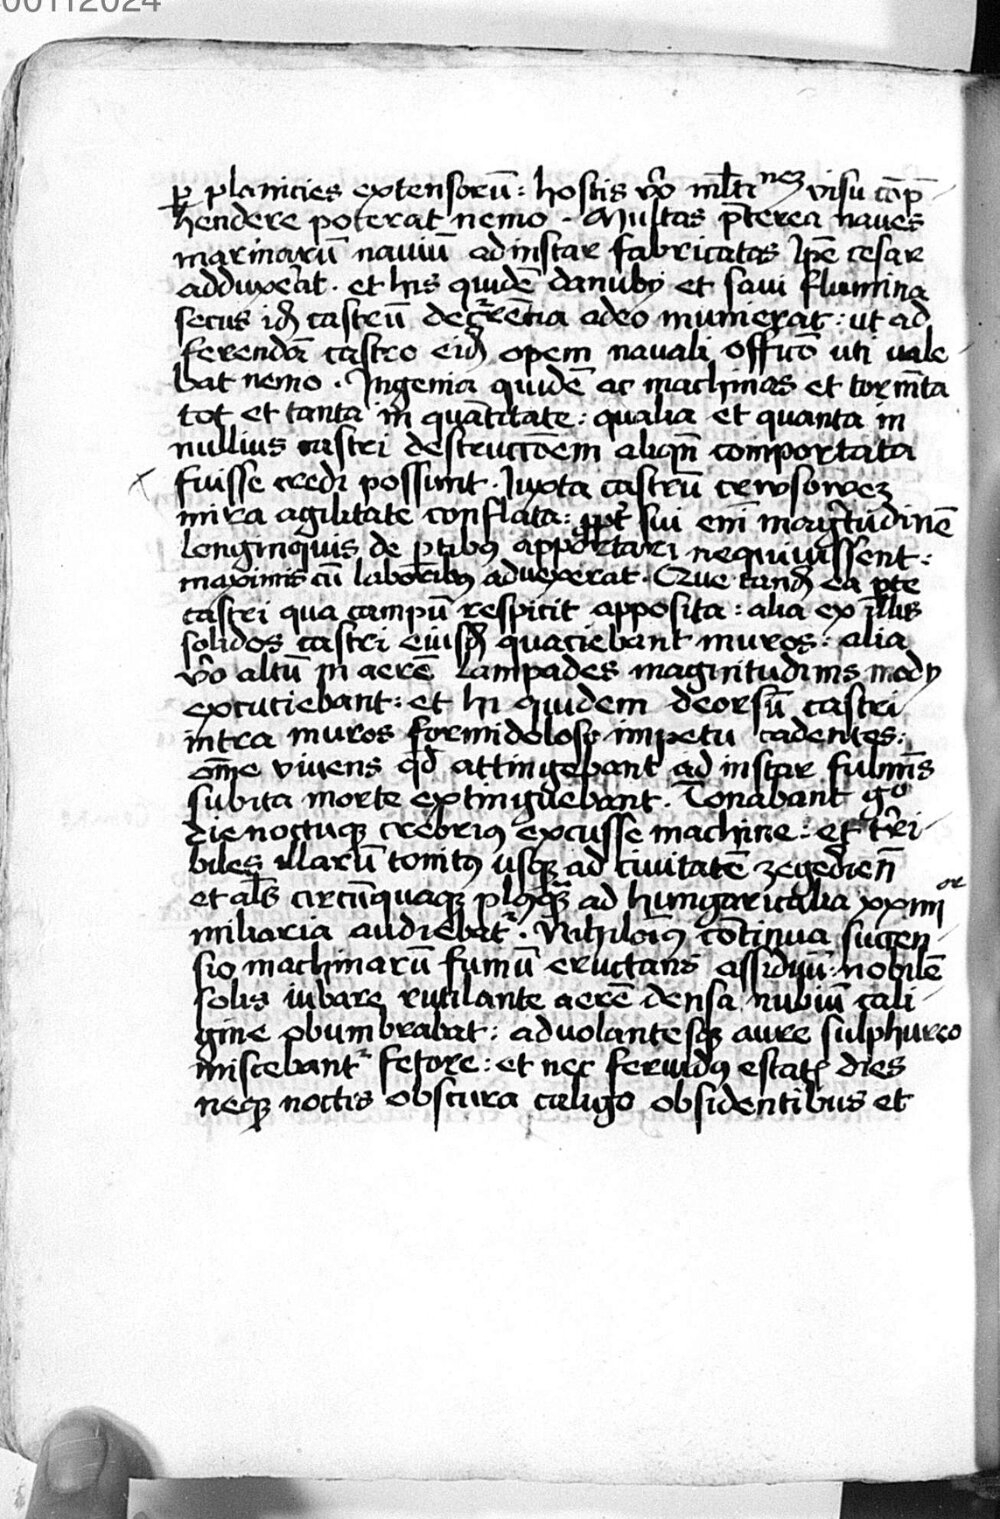 00112024
ꝑ planicies extensoruꝫ : hostis v̄o ml̄tinē visu cōp̄
hendere poterat nemo . Multas p̄terea naues
marinarū nauiū ad instar fabricatas Ip̄e cesar
adduxerat . et his quidē danuby et saui flumina
secus id castrū decͬrēcia adeo munierat : ut ad
ferendā castro eid opem nauali officō uti vale
bat nemo . Ingenia quidē ac machinas et torm̄ta
tot et tanta in quātitate : qualia et quanta in
nullius castri destruccōem aliqn̄ comportata
fuisse credi possunt . Iuxta castrū crwsowez
mira agilitate conflata : ꝓpt sui eni magͥtudinē
longinquis de ꝑtibꝰ apportari nequiuissent :
maximis cū laboribꝰ aduexerat . Que tand ea ꝑte
castri qua campū respicit apposita : alia ex illis
solidos castri eiusd quaciebant muros : alia
v̄o altū in aerē lampades magnitudinis mody
excutiebant : et hi quidem deorsū castri
intra muros formidoloso impetu cadentes :
om̄e viuens qd̄ attingebant ad instar fulmīs
subita morte extinguebant . Tonabant gͦ
die noctuqꝫ crebriꝰ excusse machine : et tͬri
biles illarū tonitꝰ usqꝫ ad ciuitatē zegedien̄
et al̄s circūquaqꝫ plꝰqꝫ ad hungaricalia xxiiiior
miliaria audiebatͬ . Nihiloīꝰ cōtinua succen
sio machinarū fumū eructans assiduū : nobilē
solis iubare rutilante aerē densa nubiū cali
gine obumbrabat : aduolantesqꝫ aure sulphureo
miscebantͬ fetore : et nec feruidꝰ estatꝭ dies
neqꝫ noctis obscura caligo obsidentibus et